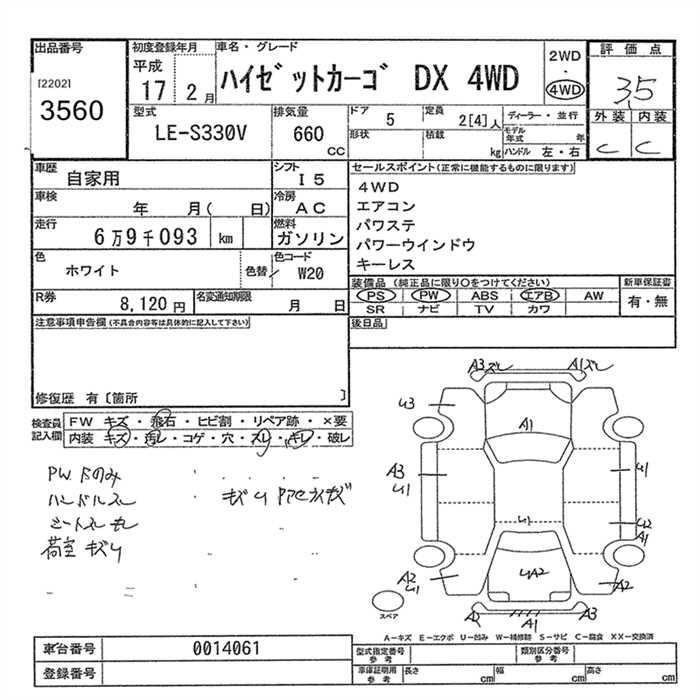 出品番号
I2202I
3560
初度登録年月
平成
17 2月
車名・グレード
ハイゼットカーゴ DX 4WD
2WD
・
4WD
評価点
3.5
外装 内装
C C
型式
LE-S330V
排気量
660
CC
ドア 5
定員 2[4]人
形状
積載 kg
ディーラー・並行
モデル年式 年
ハンドル 左・右
車歴
自家用
シフト
I 5
車検
年 月( 日)
冷房
AC
走行
6万9千093 km
燃料
ガソリン
色
ホワイト
色替
色コード
W20
R券
8,120円
名変通知期限
月 日
セールスポイント(正常に機能するものに限ります)
4WD
エアコン
パワステ
パワーウインドウ
キーレス
装備品 (純正品に限り○をつけてください)
PS PW ABS エアB AW
SR ナビ TV カワ
新車保証書
有・無
後日品
注意事項申告欄(不具合内容等は具体的に記入して下さい)
修復歴 有〔箇所 〕
検査員
記入欄
FW キズ・飛石・ヒビ割・リペア跡・×要
内装 キズ・汚レ・コゲ・穴・スレ・キレ・破レ
PW ドのみ
ハンドルスレ
荷室 キズU
A3ズレ
A1ズレ
U3
A1
A3
U1
U1
U1
U2
A1
A2
U1
UA2
A2
A2
A1
A3
スペア
A-キズ E-エクボ U-凹み W-補修跡 S-サビ C-腐食 XX-交換済
車台番号
0014061
登録番号
型式指定番号
参考
類別区分番号
参考
車庫証明用
参考
長さ cm
幅 cm
高さ cm